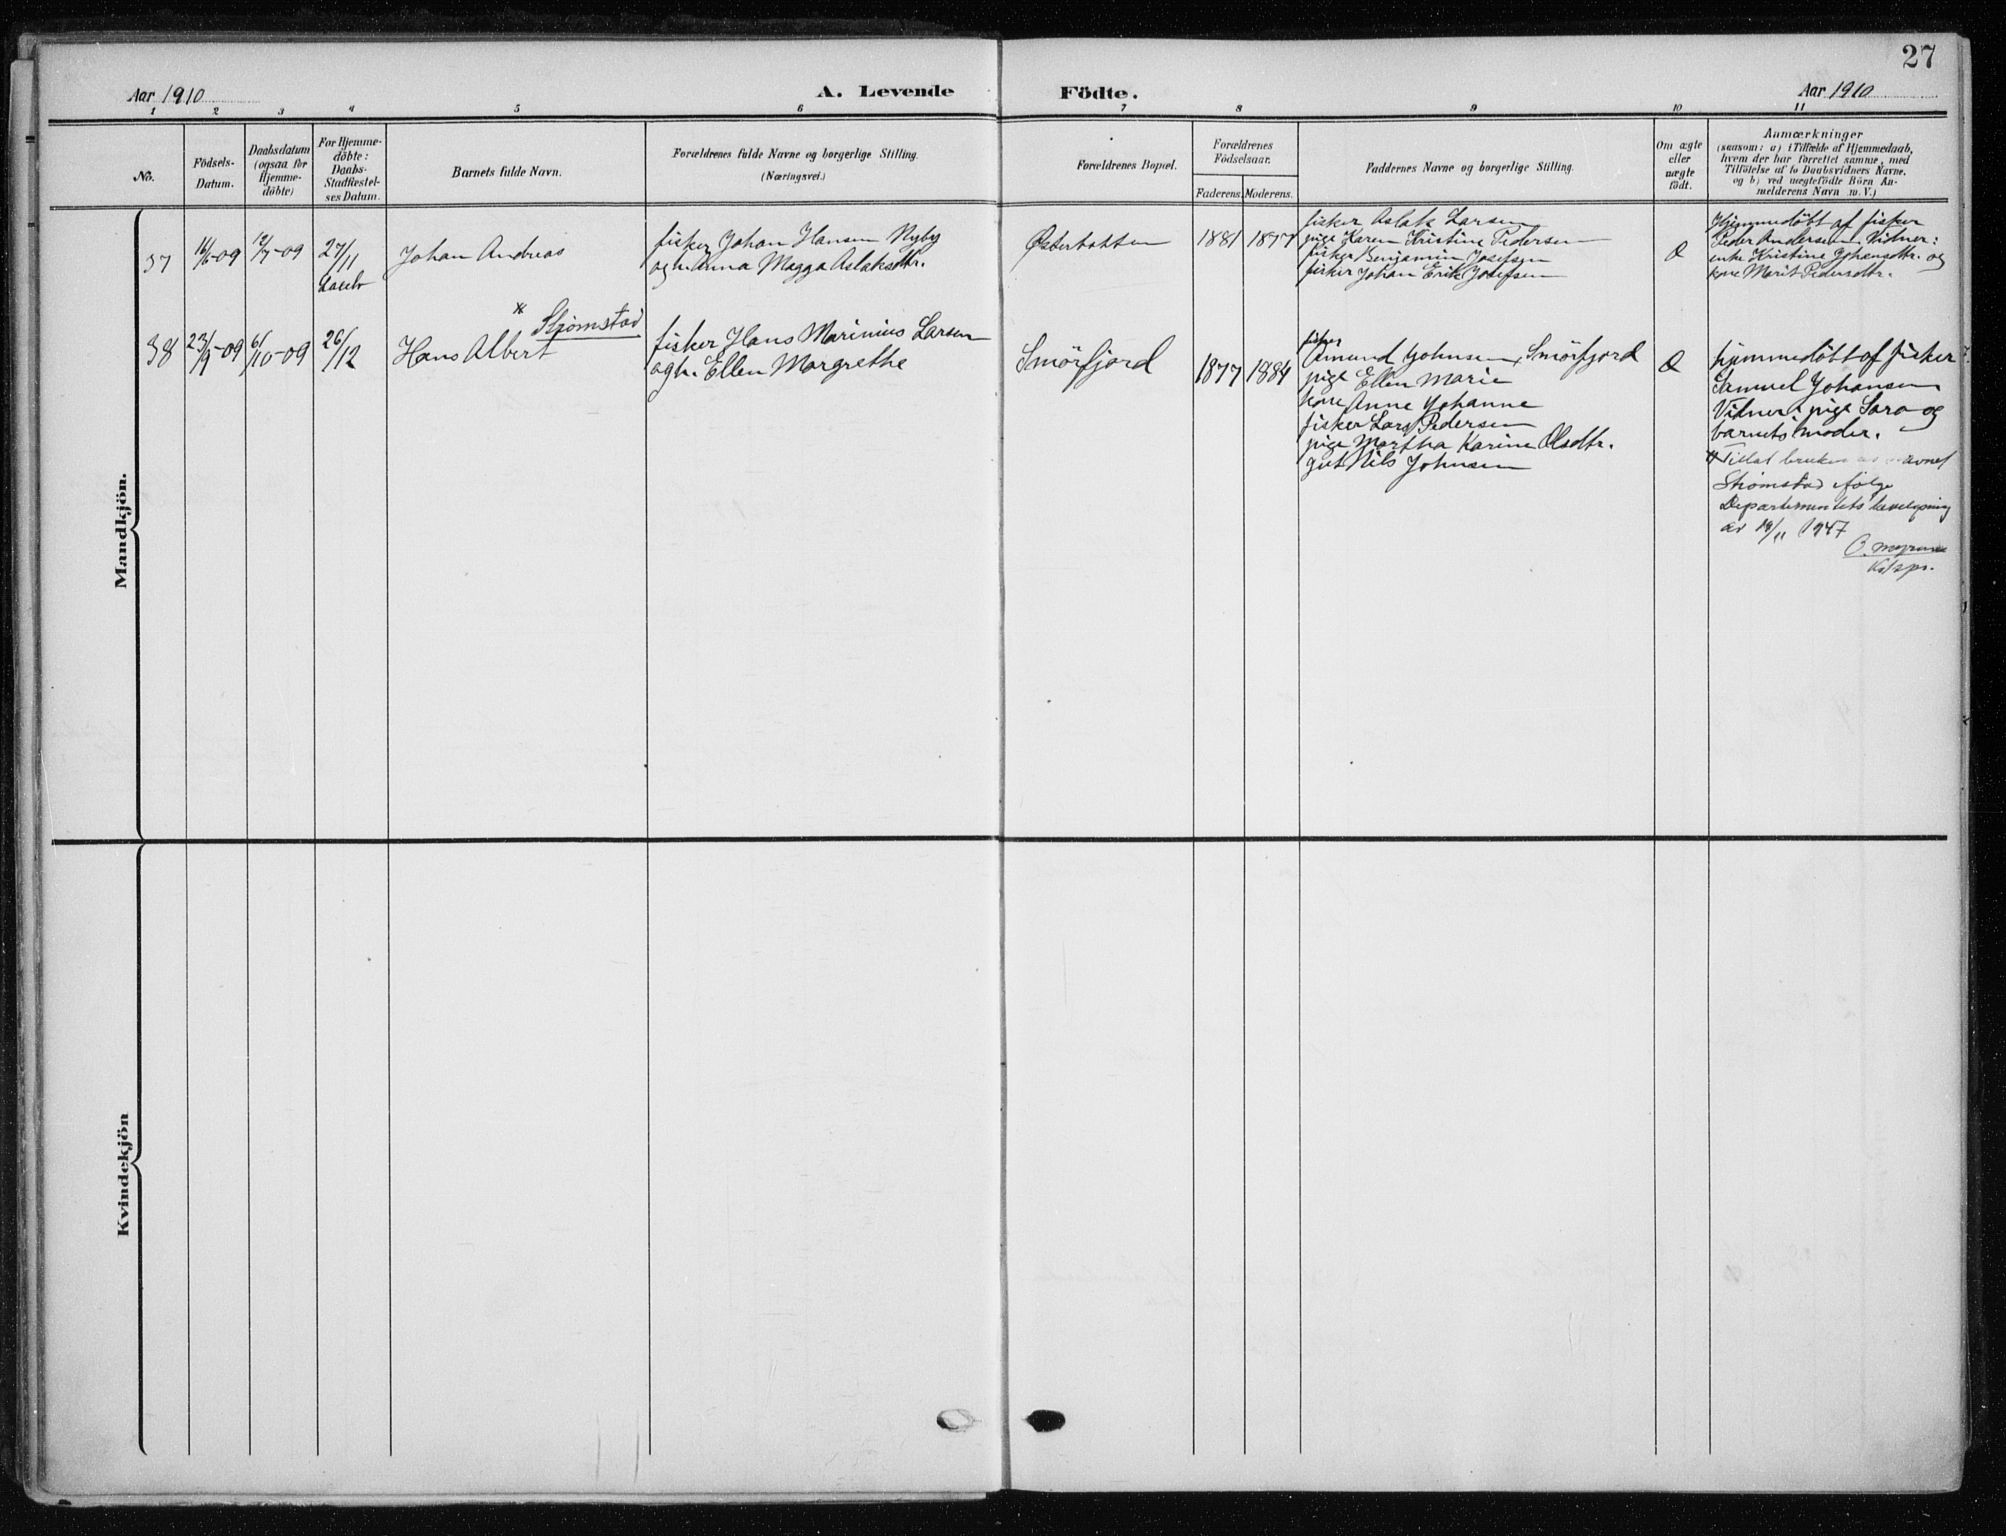 27
Aar 1910 A. Levende Födte. Aar 1910
1 2 3 4 5 6 7 8 9 10 11
No.
Födsels-
Datum.
Daabsdatum
(ogsaa for
Hjemme-
döbte)
For Hjemme-
döbte:
Daabs-
Stadfæstel-
ses Datum.
Barnets fulde Navn.
Forældrenes fulde Navne og borgerlige Stilling.
(Næringsvei.)
Forældrenes Bopæl.
Forældrenes
Födselsaar.
Faderens. Moderens.
Faddernes Navne og borgerlige Stilling.
Om ægte
eller
uægte
födt.
Anmærkninger
(saasom: a) i Tilfælde af Hjemmedaab,
hvem der har forrettet samme, med
Tilföielse af to Daabsvidners Navne,
og b) ved uægtefödte Börn An-
melderens Navn m. V.)
Mandkjön.
37
16/6-09
12/7-09
27/11
Johan Andreas
fisker Johan Hansen Nyby
og h. Anna Magga Aslaksdtr.
Østerbotten
1881
1877
fisker Aslak Larsen
pige Karen Kristine Pedersen
fisker Benjamin Josefsen
fisker Johan Erik Josefsen
Hjemmedöbt af fisker
Peder Andersen. Vidner:
enke Kristine Johansdtr. og
kone Marit Pedersdtr.
38
23/9-09
6/10-09
26/12
* Strømstad
Hans Albert
fisker Hans Marinius Larsen
og h. Ellen Margrethe
Smörfjord
1877
1884
fisker
Amund Johnsen, Smörfjord
pige Ellen Marie
kone Anne Johanne
fisker Lars Pedersen
pige Martha Karine Olsdtr.
gut Nils Johnsen
hjemmedöbt af fisker
Samuel Johansen
Vidner: pige Sara og
barnets moder.
* Tillat bruken av navnet
Strømstad ifølge
Departementets bevilgning
av 19/11 1947
Kvindekjön